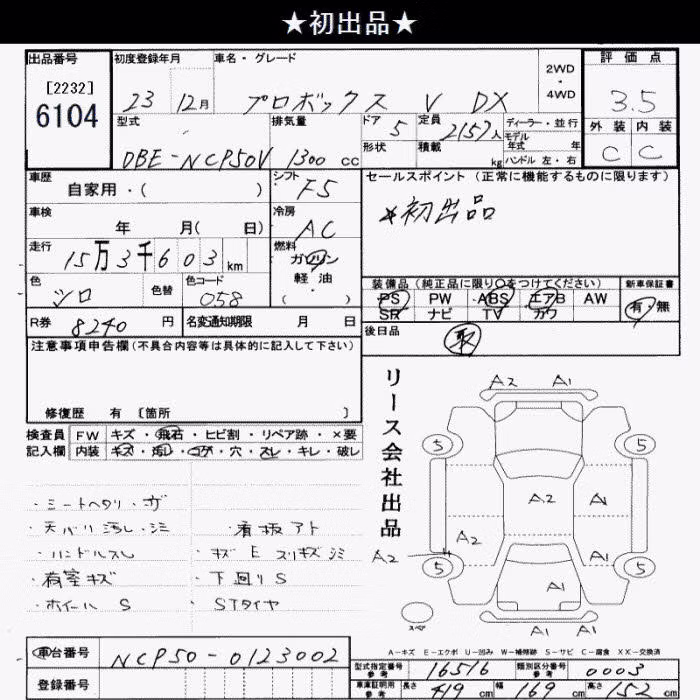 ★初出品★
出品番号
[2232]
6104
初度登録年月
23 12月
車名・グレード
プロボックス V DX
2WD
・
4WD
評価点
3.5
外装 内装
C C
型式
DBE-NCP50V
排気量
1300 cc
ドア 5
形状
定員 2157人
積載 kg
ディーラー・並行
モデル
年式 年
ハンドル 左・右
車歴
自家用・( )
シフト
F5
車検
年 月( 日)
冷房
AC
走行
15万3千603 km
燃料
ガソリン
軽油
( )
色
シロ
色替
色コード
058
R券 8240 円
名変通知期限 月 日
セールスポイント(正常に機能するものに限ります)
★初出品
装備品(純正品に限り○をつけてください)
PS PW ABS エアB AW
SR ナビ TV カワ
新車保証書
有・無
後日品
取
注意事項申告欄(不具合内容等は具体的に記入して下さい)
修復歴 有 〔箇所 〕
検査員 FW キズ・飛石・ヒビ割・リペア跡・×要
記入欄 内装 キズ・汚レ・コゲ・穴・スレ・キレ・破レ
・シートヘタリ・ザ
・天バリ汚レ・シミ
・看板アト
・ハンドルスレ
・キズ E スリキズ シミ
・荷室キズ
・下回りS
・ホイール S
・STタイヤ
リース会社出品
A2 A1
5 5
A2 A1
A2
A2 A1
5 5
A1
A1 A1
スペア
A-キズ E-エクボ U-凹み W-補修跡 S-サビ C-腐食 XX-交換済
車台番号 NCP50-0123002
登録番号
型式指定番号
参考
16516
類別区分番号
参考
0003
車庫証明用
参考
長さ 419 cm 幅 169 cm 高さ 152 cm